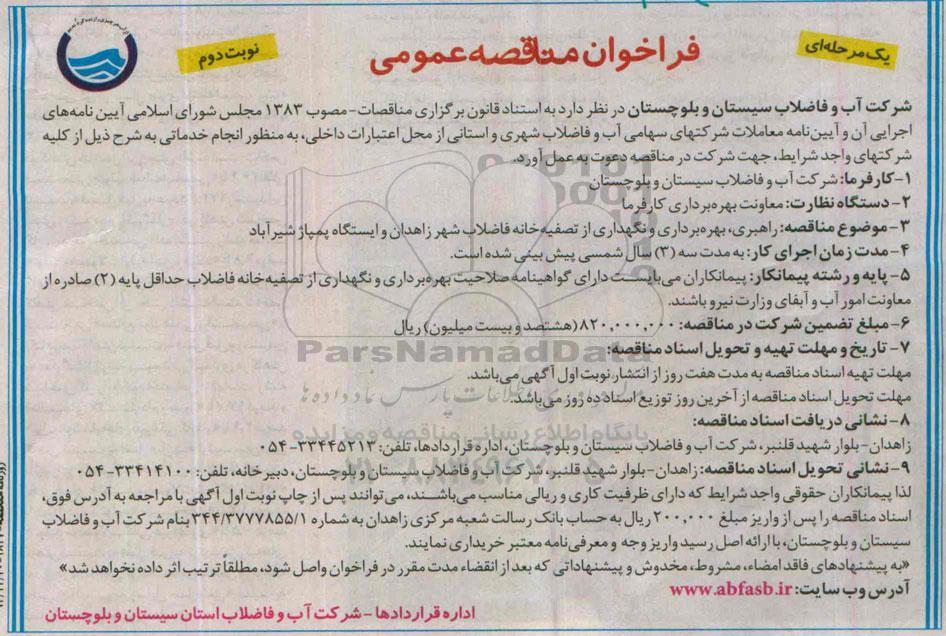 یک مرحله‌ای
فراخوان مناقصه عمومی
نوبت دوم
شرکت آب و فاضلاب سیستان و بلوچستان در نظر دارد به استناد قانون برگزاری مناقصات- مصوب ۱۳۸۳ مجلس شورای اسلامی آیین نامه‌های
اجرایی آن و آیین‌نامه معاملات شرکتهای سهامی آب و فاضلاب شهری و استانی از محل اعتبارات داخلی، به منظور انجام خدماتی به شرح ذیل از کلیه
شرکتهای واجد شرایط، جهت شرکت در مناقصه دعوت به عمل آورد.
۱-کارفرما: شرکت آب و فاضلاب سیستان و بلوچستان
۲- دستگاه نظارت: معاونت بهره‌برداری کارفرما
۳- موضوع مناقصه: راهبری، بهره‌برداری و نگهداری از تصفیه‌خانه فاضلاب شهر زاهدان و ایستگاه پمپاژ شیرآباد
۴- مدت زمان اجرای کار: به مدت سه (۳) سال شمسی پیش بینی شده است.
۵- پایه و رشته پیمانکار: پیمانکاران می‌بایست دارای گواهینامه صلاحیت بهره‌برداری و نگهداری از تصفیه‌خانه فاضلاب حداقل پایه (۲) صادره از
معاونت امور آب و آبفای وزارت نیرو باشند.
۶- مبلغ تضمین شرکت در مناقصه: ۸۲۰,۰۰۰,۰۰۰ (هشتصد و بیست میلیون) ریال
۷- تاریخ و مهلت تهیه و تحویل اسناد مناقصه:
مهلت تهیه اسناد مناقصه به مدت هفت روز از انتشار نوبت اول آگهی می‌باشد.
مهلت تحویل اسناد مناقصه از آخرین روز توزیع اسناد ده روز می‌باشد.
۸- نشانی دریافت اسناد مناقصه:
زاهدان- بلوار شهید قلنبر، شرکت آب و فاضلاب سیستان و بلوچستان، اداره قراردادها، تلفن: ۳۳۴۴۵۲۱۱-۰۵۴
۹- نشانی تحویل اسناد مناقصه: زاهدان- بلوار شهید قلنبر، شرکت آب و فاضلاب سیستان و بلوچستان، دبیرخانه، تلفن: ۳۳۴۱۴۱۰۰-۰۵۴
لذا پیمانکاران حقوقی واجد شرایط که دارای ظرفیت کاری و ریالی مناسب می‌باشند، می‌توانند پس از چاپ نوبت اول آگهی با مراجعه به آدرس فوق،
اسناد مناقصه را پس از واریز مبلغ ۲۰۰,۰۰۰ ریال به حساب بانک رسالت شعبه مرکزی زاهدان به شماره ۳۴۴/۳۷۷۷۸۵۵/۱ بنام شرکت آب و فاضلاب
سیستان و بلوچستان، با ارائه اصل رسید واریز وجه و معرفی‌نامه معتبر خریداری نمایند.
«به پیشنهادهای فاقد امضاء، مشروط، مخدوش و پیشنهاداتی که بعد از انقضاء مدت مقرر در فراخوان واصل شود، مطلقاً ترتیب اثر داده نخواهد شد»
آدرس وب سایت: www.abfasb.ir
اداره قراردادها - شرکت آب و فاضلاب استان سیستان و بلوچستان
ParsNamadData
پایگاه اطلاع رسانی مناقصه و مزایده